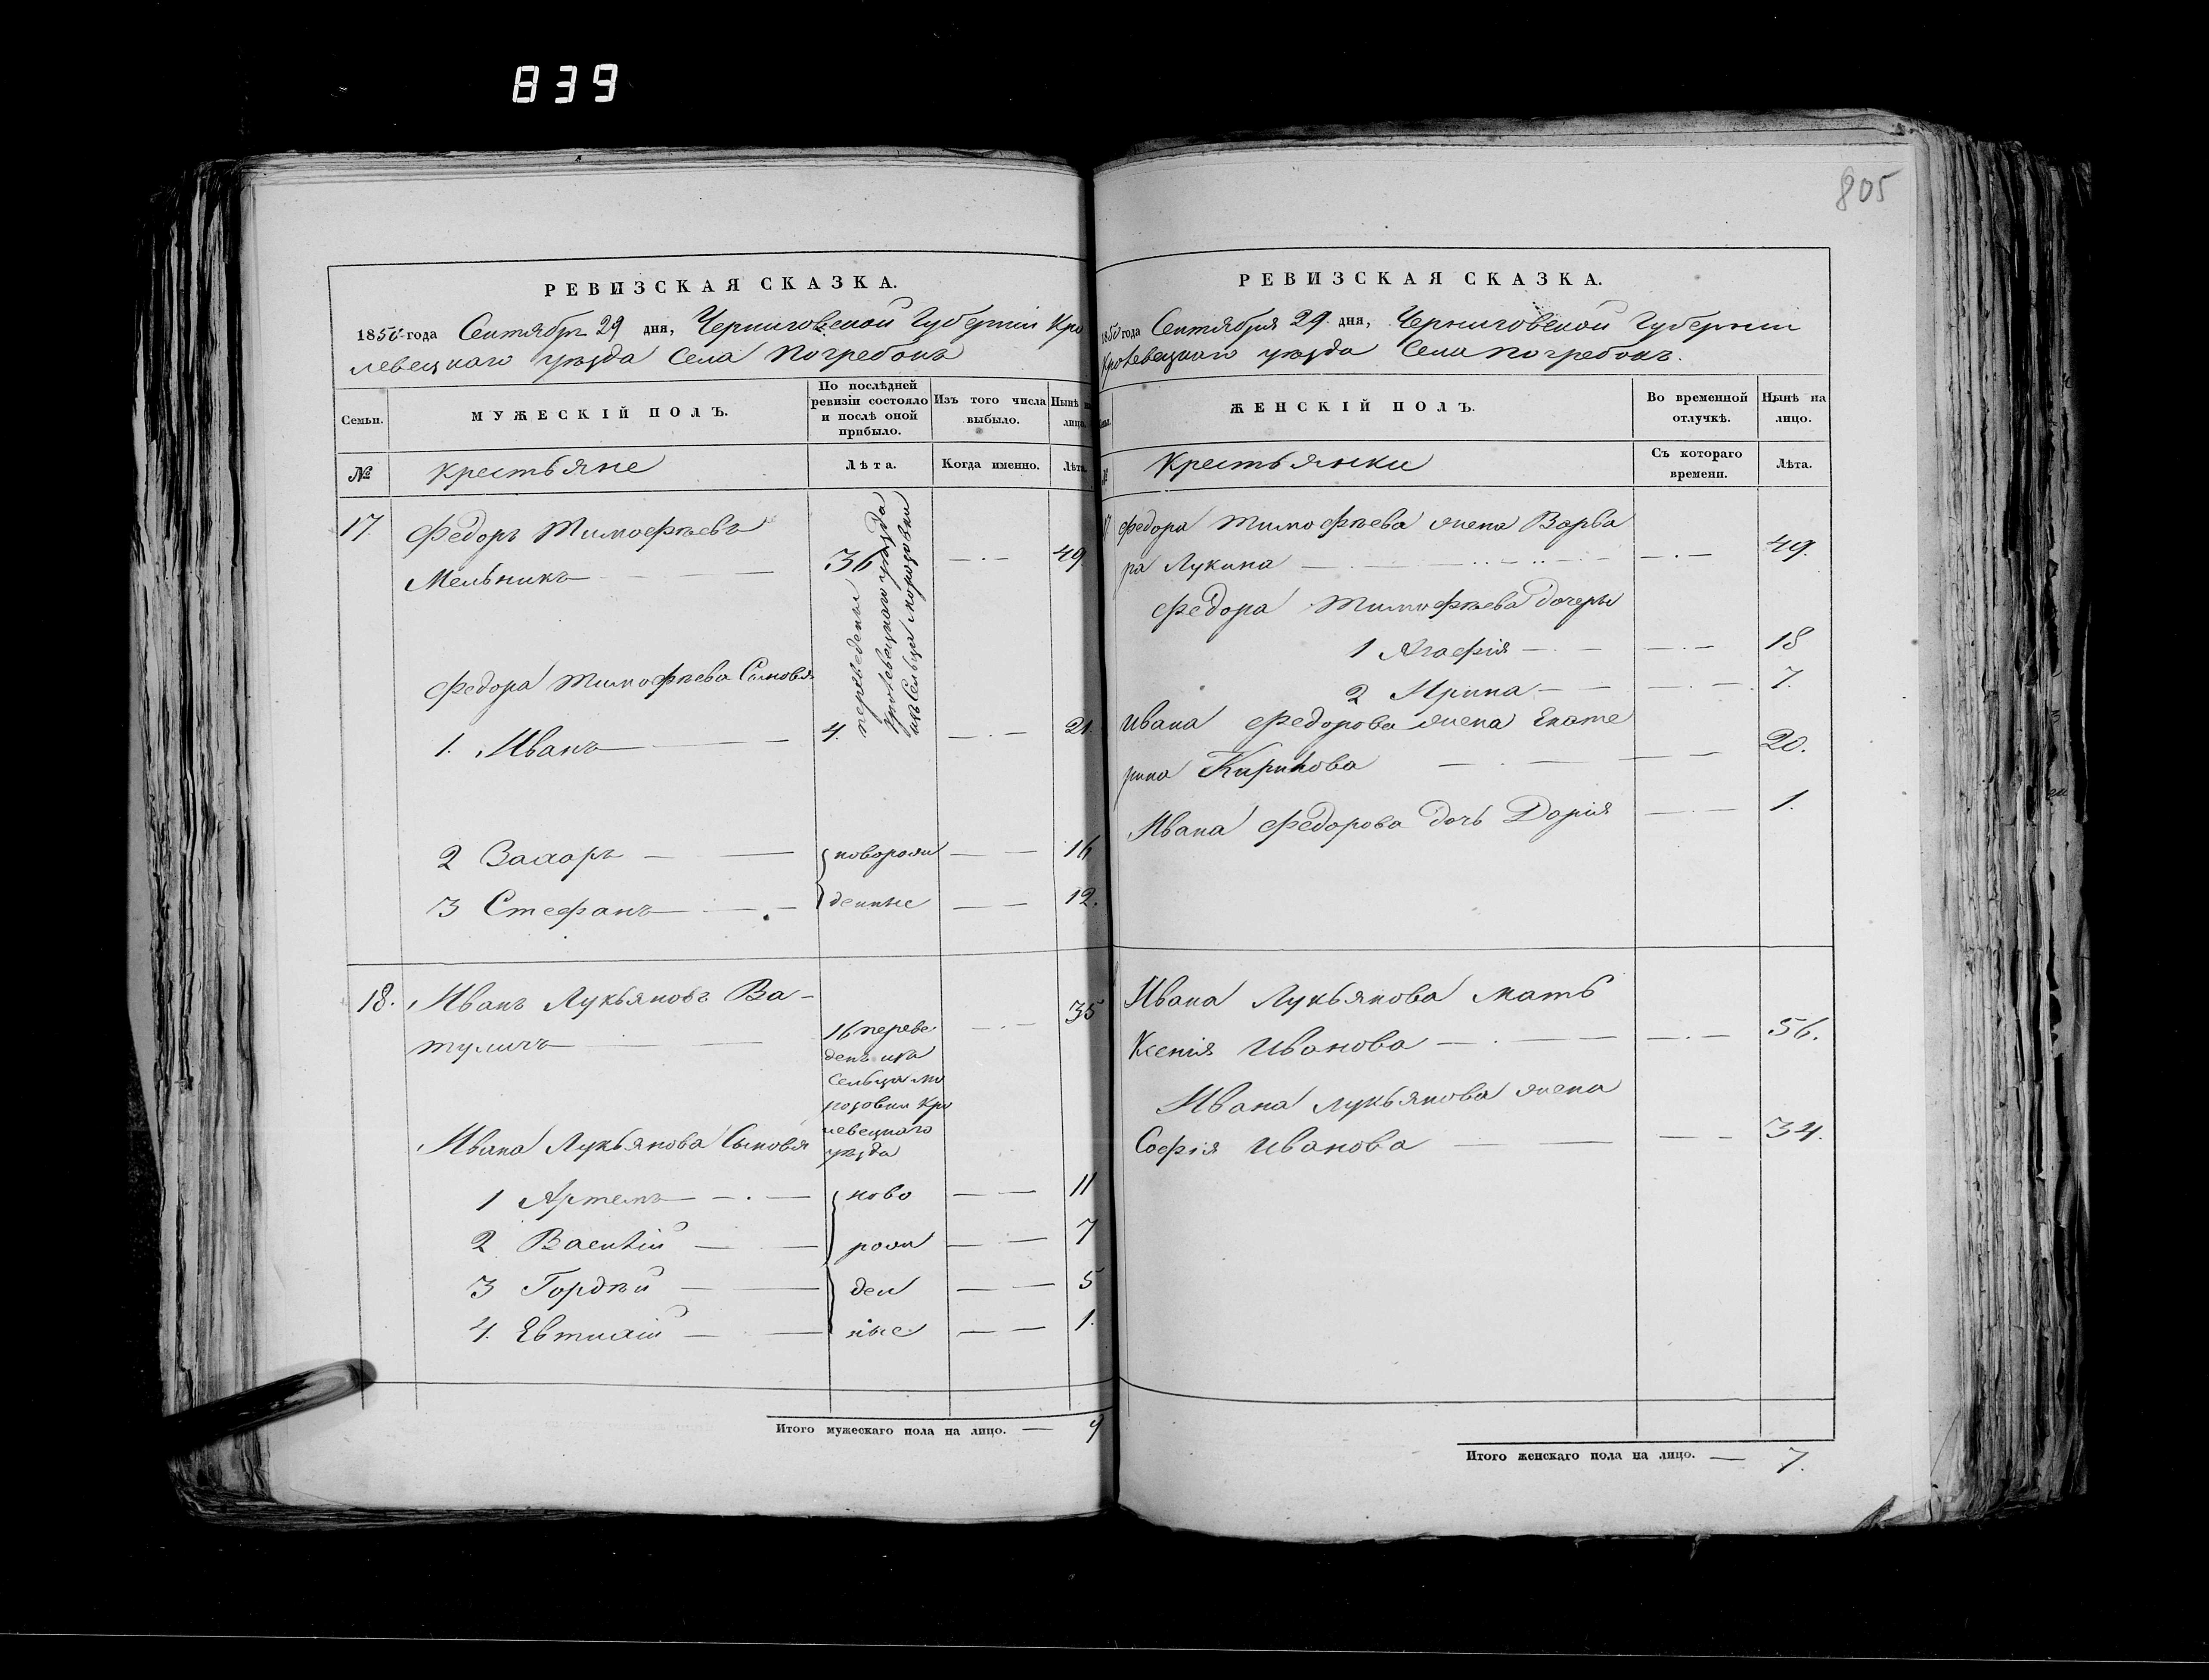 839
805
РЕВИЗСКАЯ СКАЗКА.
1850 года Сентября 29 дня, Черниговской Губерніи Кро
левецкаго уѣзда Села Погребокъ
Семьи. МУЖЕСКІЙ ПОЛЪ. По послѣдней ревизіи состояло и послѣ оной прибыло. Изъ того числа выбыло. Нынѣ на лицо.
№ Крестьяне Лѣта. Когда именно. Лѣта.
17. Федоръ Тимофѣевъ
Мельникъ — 36 — 49
переведены
Кролевецкаго уѣзда
изъ Сельца Морозовки
Федора Тимофѣева Сыновья
1. Иванъ — 4. — 21.
2 Захаръ — новорож — 16
3 Стефанъ — денные — 12.
18. Иванъ Лукьяновъ Ва-
туличъ — 35
16 переве
денъ изъ
Сельца Мо
розовки Кро
левецкаго
уѣзда
Ивана Лукьянова Сыновья
1 Артемъ — ново — 11
2 Василій — рож — 7
3 Гордѣй — ден — 5
4. Евтихій — ные — 1.
Итого мужескаго пола на лицо. — 9
РЕВИЗСКАЯ СКАЗКА.
1850 года Сентября 29 дня, Черниговской Губерніи
Кролевецкаго уѣзда Села Погребокъ.
ЖЕНСКІЙ ПОЛЪ. Во временной отлучкѣ. Нынѣ на лицо.
Крестьянки Съ котораго времени. Лѣта.
17 Федора Тимофѣева жена Варва
ра Лукина — 49.
Федора Тимофѣева дочери
1 Агафія — 18
2 Ирина — 7.
Ивана Федорова жена Екате
рина Кирилова — 20.
Ивана Федорова дочь Дарія — 1.
Ивана Лукьянова мать
Ксенія Иванова — 56.
Ивана Лукьянова жена
Софія Иванова — 34.
Итого женскаго пола на лицо. — 7.